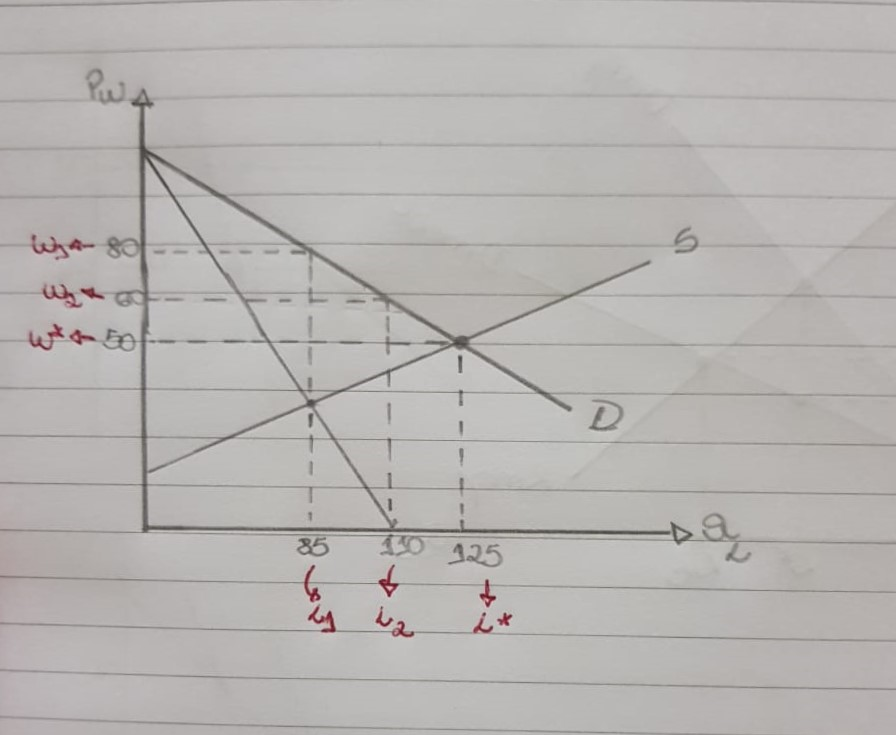 Pw
S
w1 ← 80
w2 ← 60
w* ← 50
D
85 110 125 QL
↓ ↓ ↓
L1 L2 L*